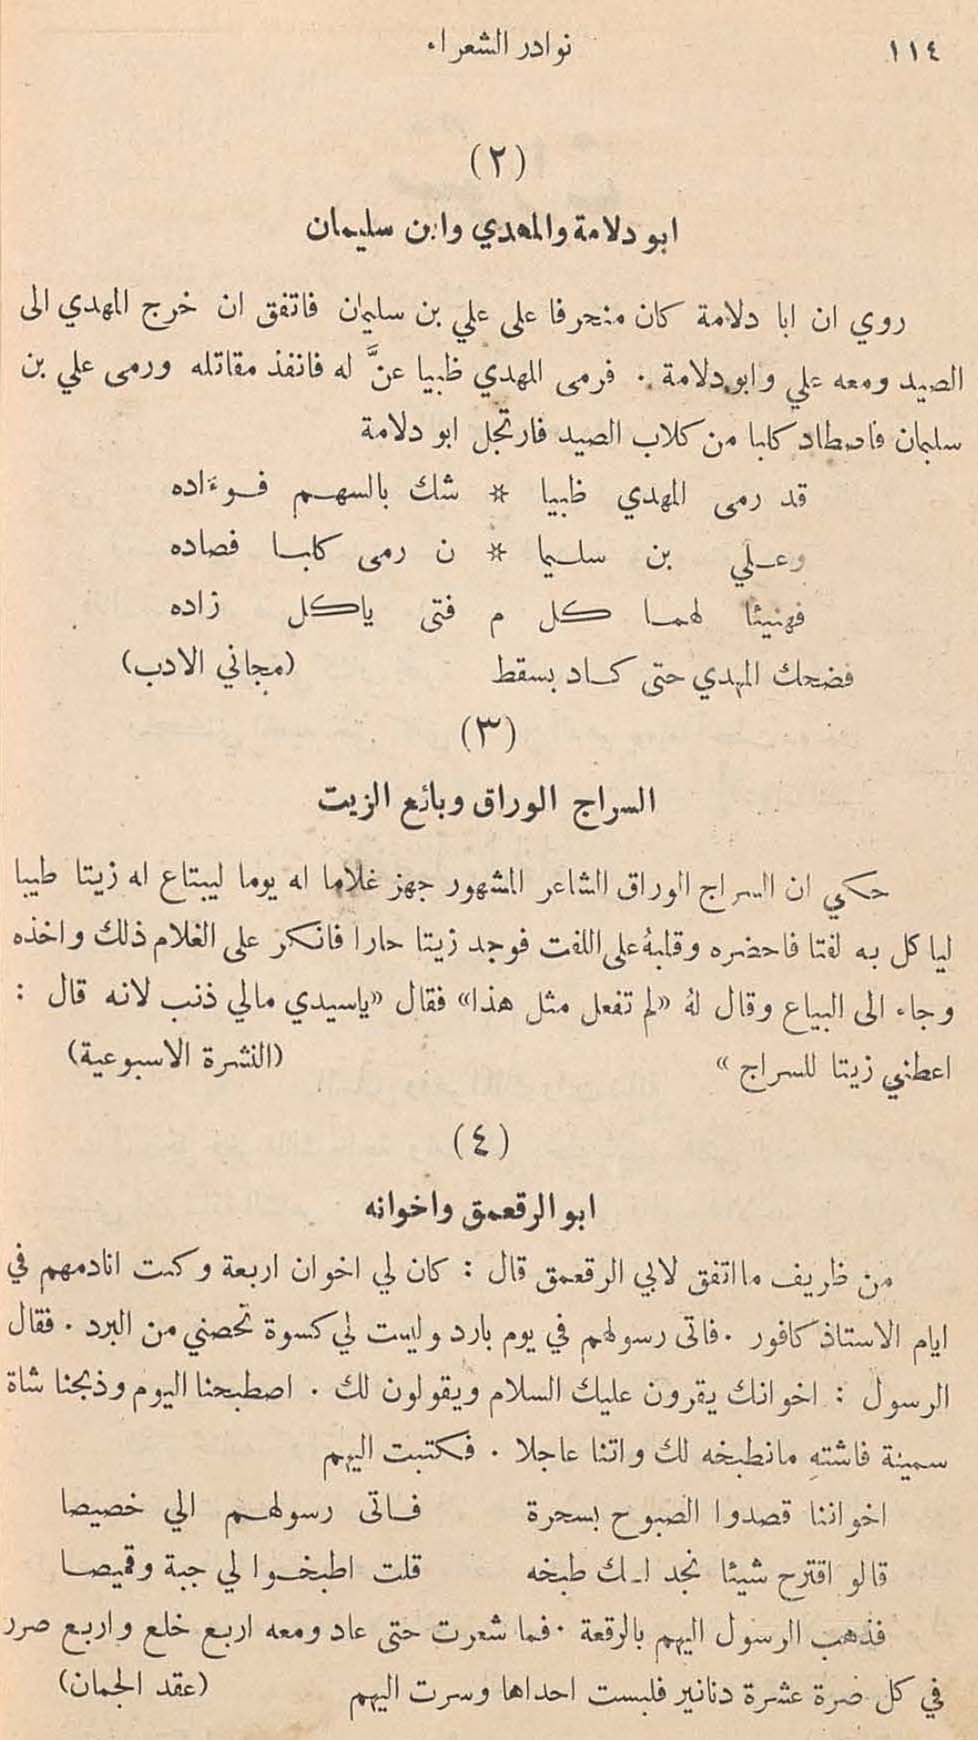 ١١٤ نوادر الشعراء
(٢)
ابو دلامة والمهدي وابن سليمان
روي ان ابا دلامة كان منحرفا على علي بن سليمان فاتفق ان خرج المهدي الى
الصيد ومعه علي وابو دلامة . فرمى المهدي ظبيا عنَّ له فانفذ مقاتله ورمى علي بن
سليمان فاصطاد كلبا من كلاب الصيد فارتجل ابو دلامة
قد رمى المهدي ظبيا * شك بالسهم فوءاده
وعلي بن سليما * ن رمى كلبا فصاده
فهنيئا لهما كل م فتى ياكل زاده
فضحك المهدي حتى كاد يسقط (مجاني الادب)
(٣)
السراج الوراق وبائع الزيت
حكي ان السراج الوراق الشاعر المشهور جهز غلاما له يوما ليبتاع له زيتا طيبا
لياكل به لفتا فاحضره وقلبهُ على اللفت فوجد زيتا حارا فانكر على الغلام ذلك واخذه
وجاء الى البياع وقال لهُ «لم تفعل مثل هذا» فقال «ياسيدي مالي ذنب لانه قال :
اعطني زيتا للسراج » (النشرة الاسبوعية)
(٤)
ابو الرقعمق واخوانه
من ظريف ما اتفق لابي الرقعمق قال : كان لي اخوان اربعة وكنت انادمهم في
ايام الاستاذ كافور . فاتى رسولهم في يوم بارد وليست لي كسوة تحصنني من البرد . فقال
الرسول : اخوانك يقرون عليك السلام ويقولون لك . اصطبحنا اليوم وذبحنا شاة
سمينة فاشتهِ مانطبخه لك واتنا عاجلا . فكتبت اليهم
اخواننا قصدوا الصبوح بسحرة فاتى رسولهم الي خصيصا
قالو اقترح شيئا نجد لك طبخه قلت اطبخوا لي جبة وقميصا
فذهب الرسول اليهم بالرقعة . فما شعرت حتى عاد ومعه اربع خلع واربع صرر
في كل صرة عشرة دنانير فلبست احداها وسرت اليهم (عقد الجمان)